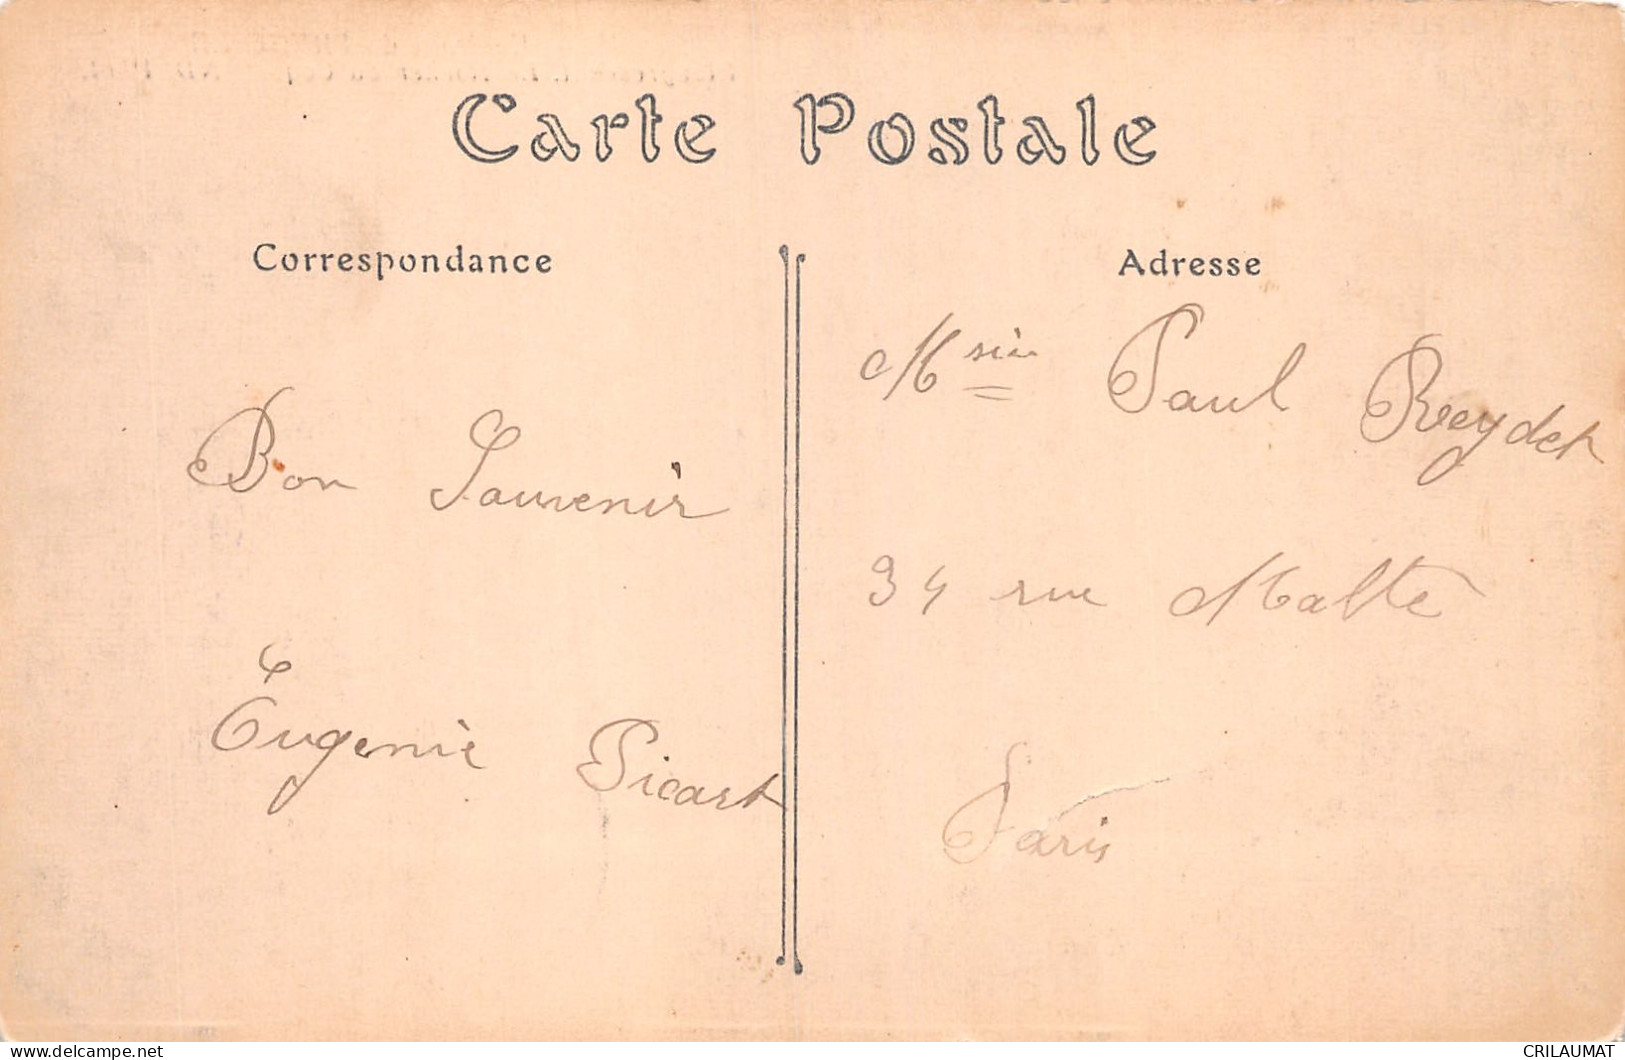 Carte Postale
Correspondance
Bon Souvenir
Eugenie Picart
Adresse
Paul Reydet
34 rue Malte
Paris
CRILAUMAT
delcampe.net